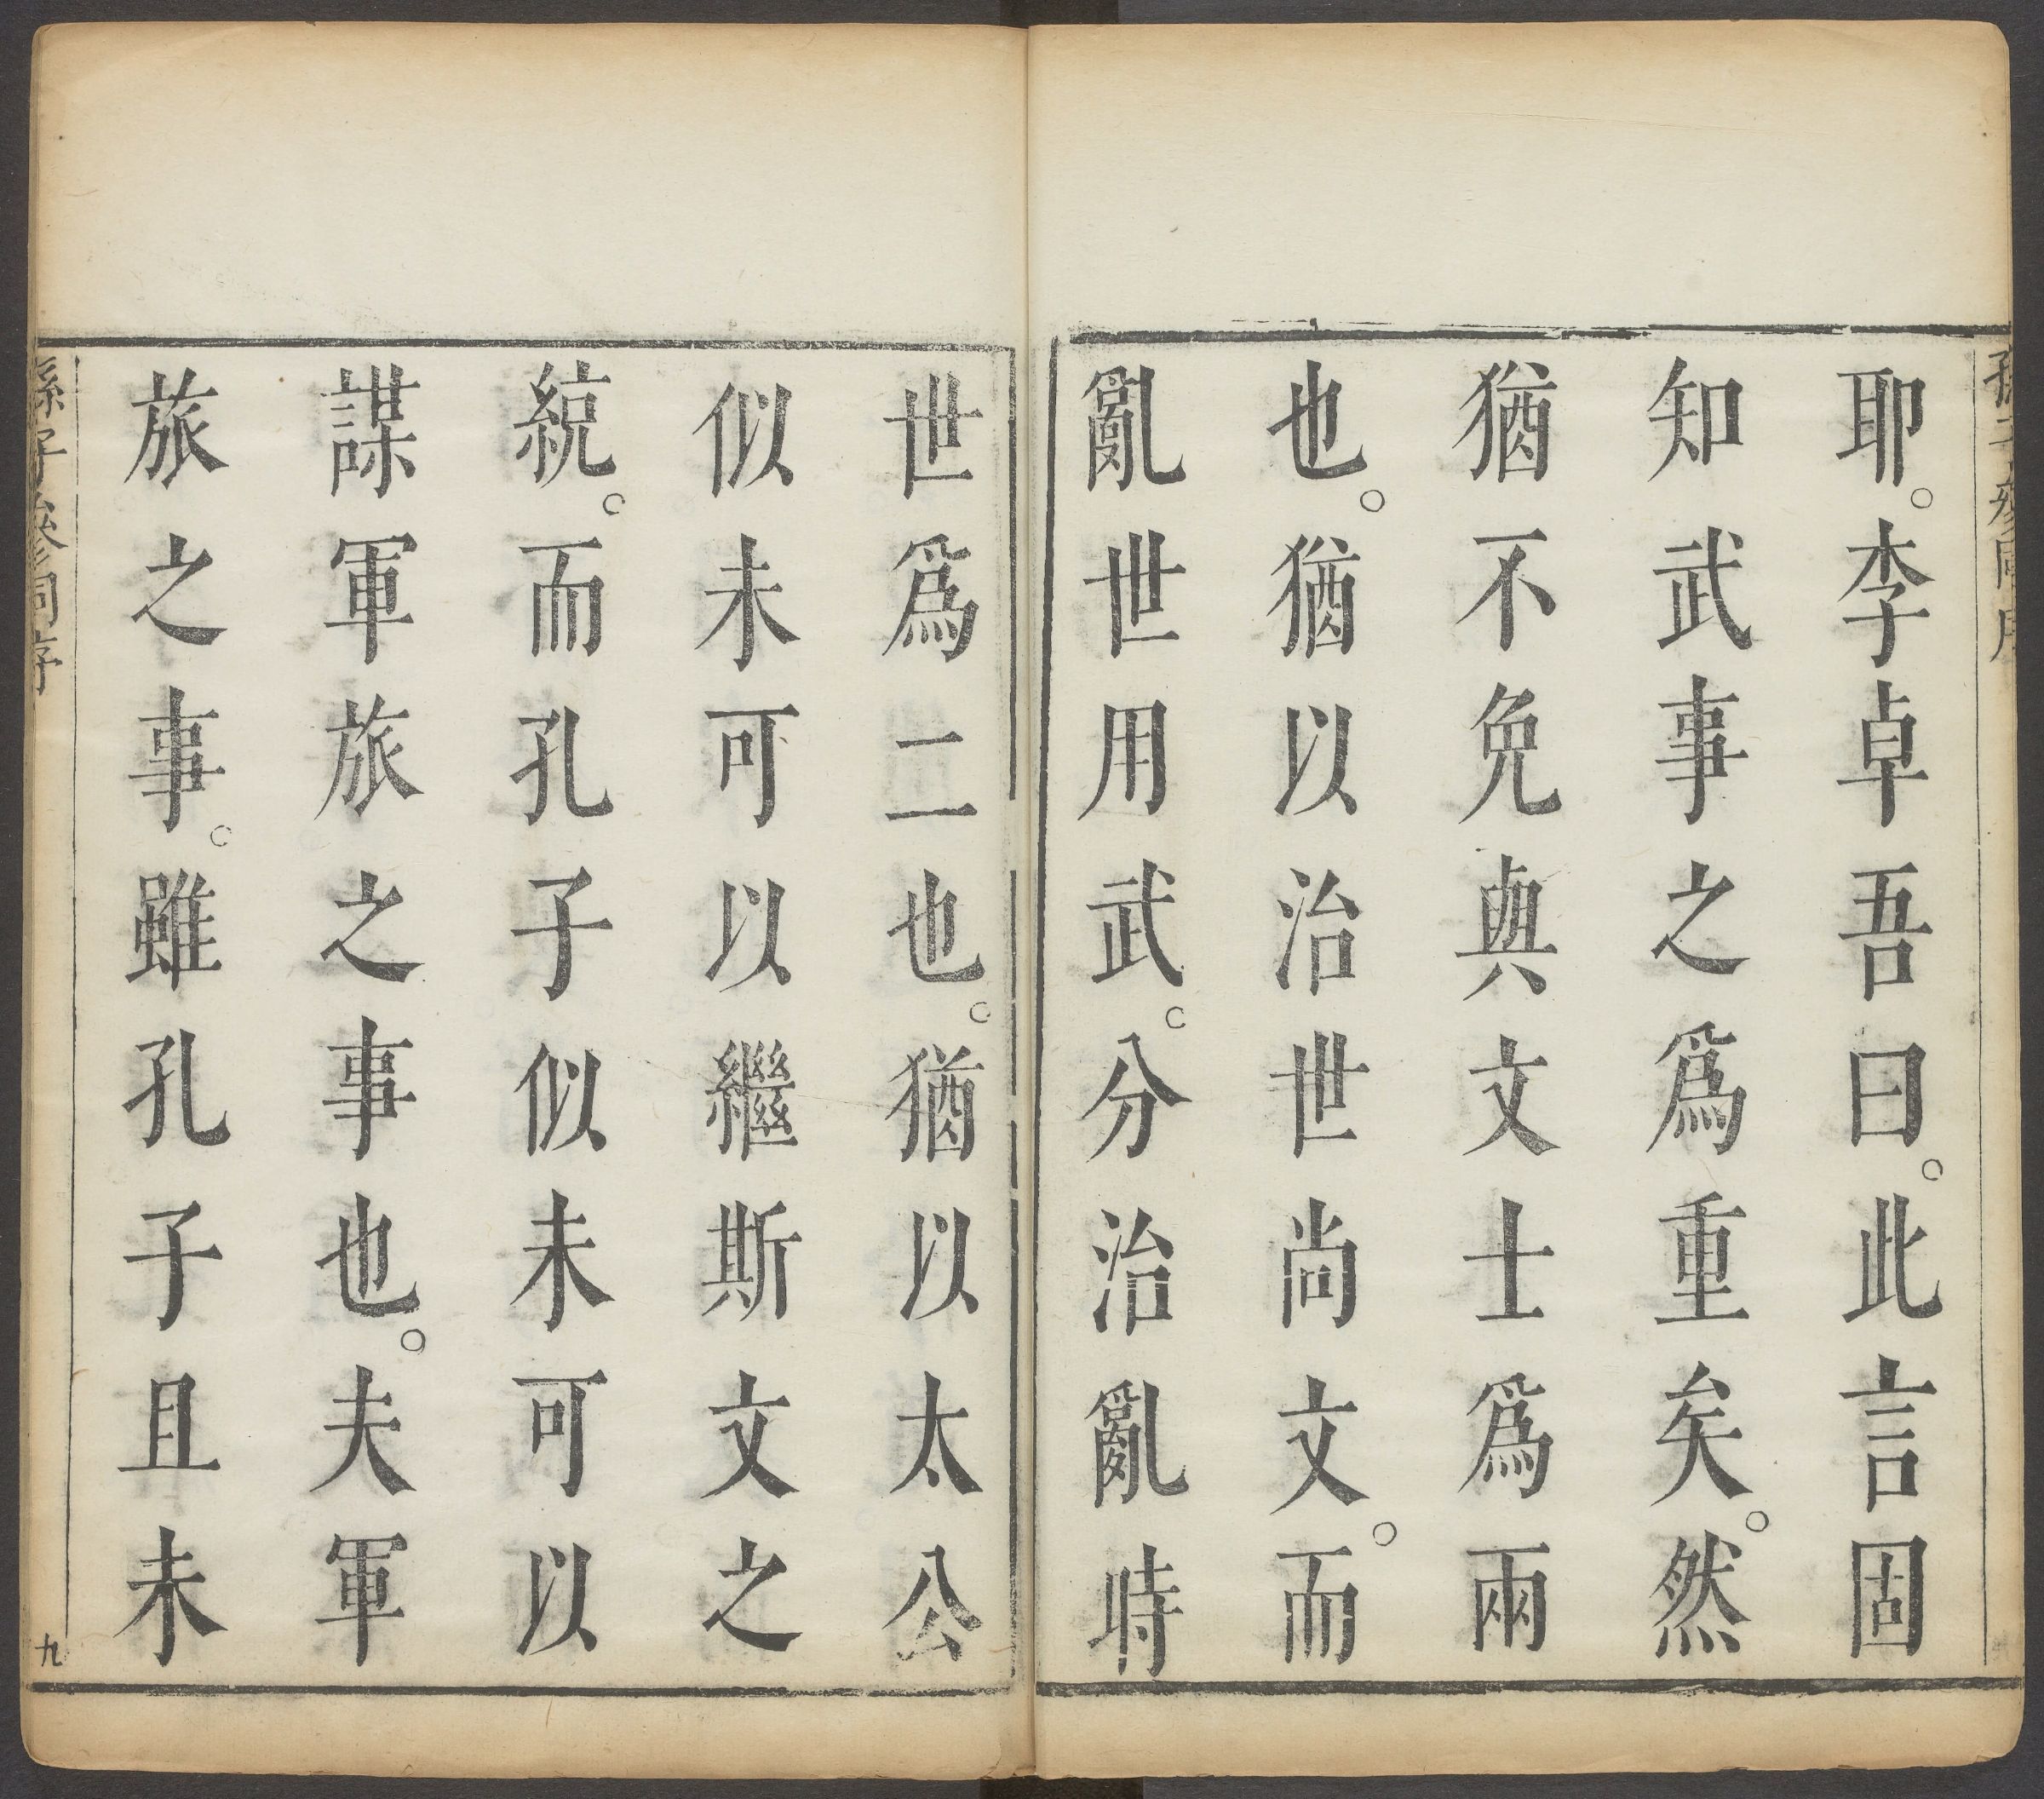 耶。李卓吾曰。此言固
知武事之爲重矣。然
猶不免與文士爲兩
也。猶以治世尚文。而
亂世用武。分治亂時
世爲二也。猶以太公
似未可以繼斯文之
統。而孔子似未可以
謀軍旅之事也。夫軍
旅之事。雖孔子且未
孫子參同序
九